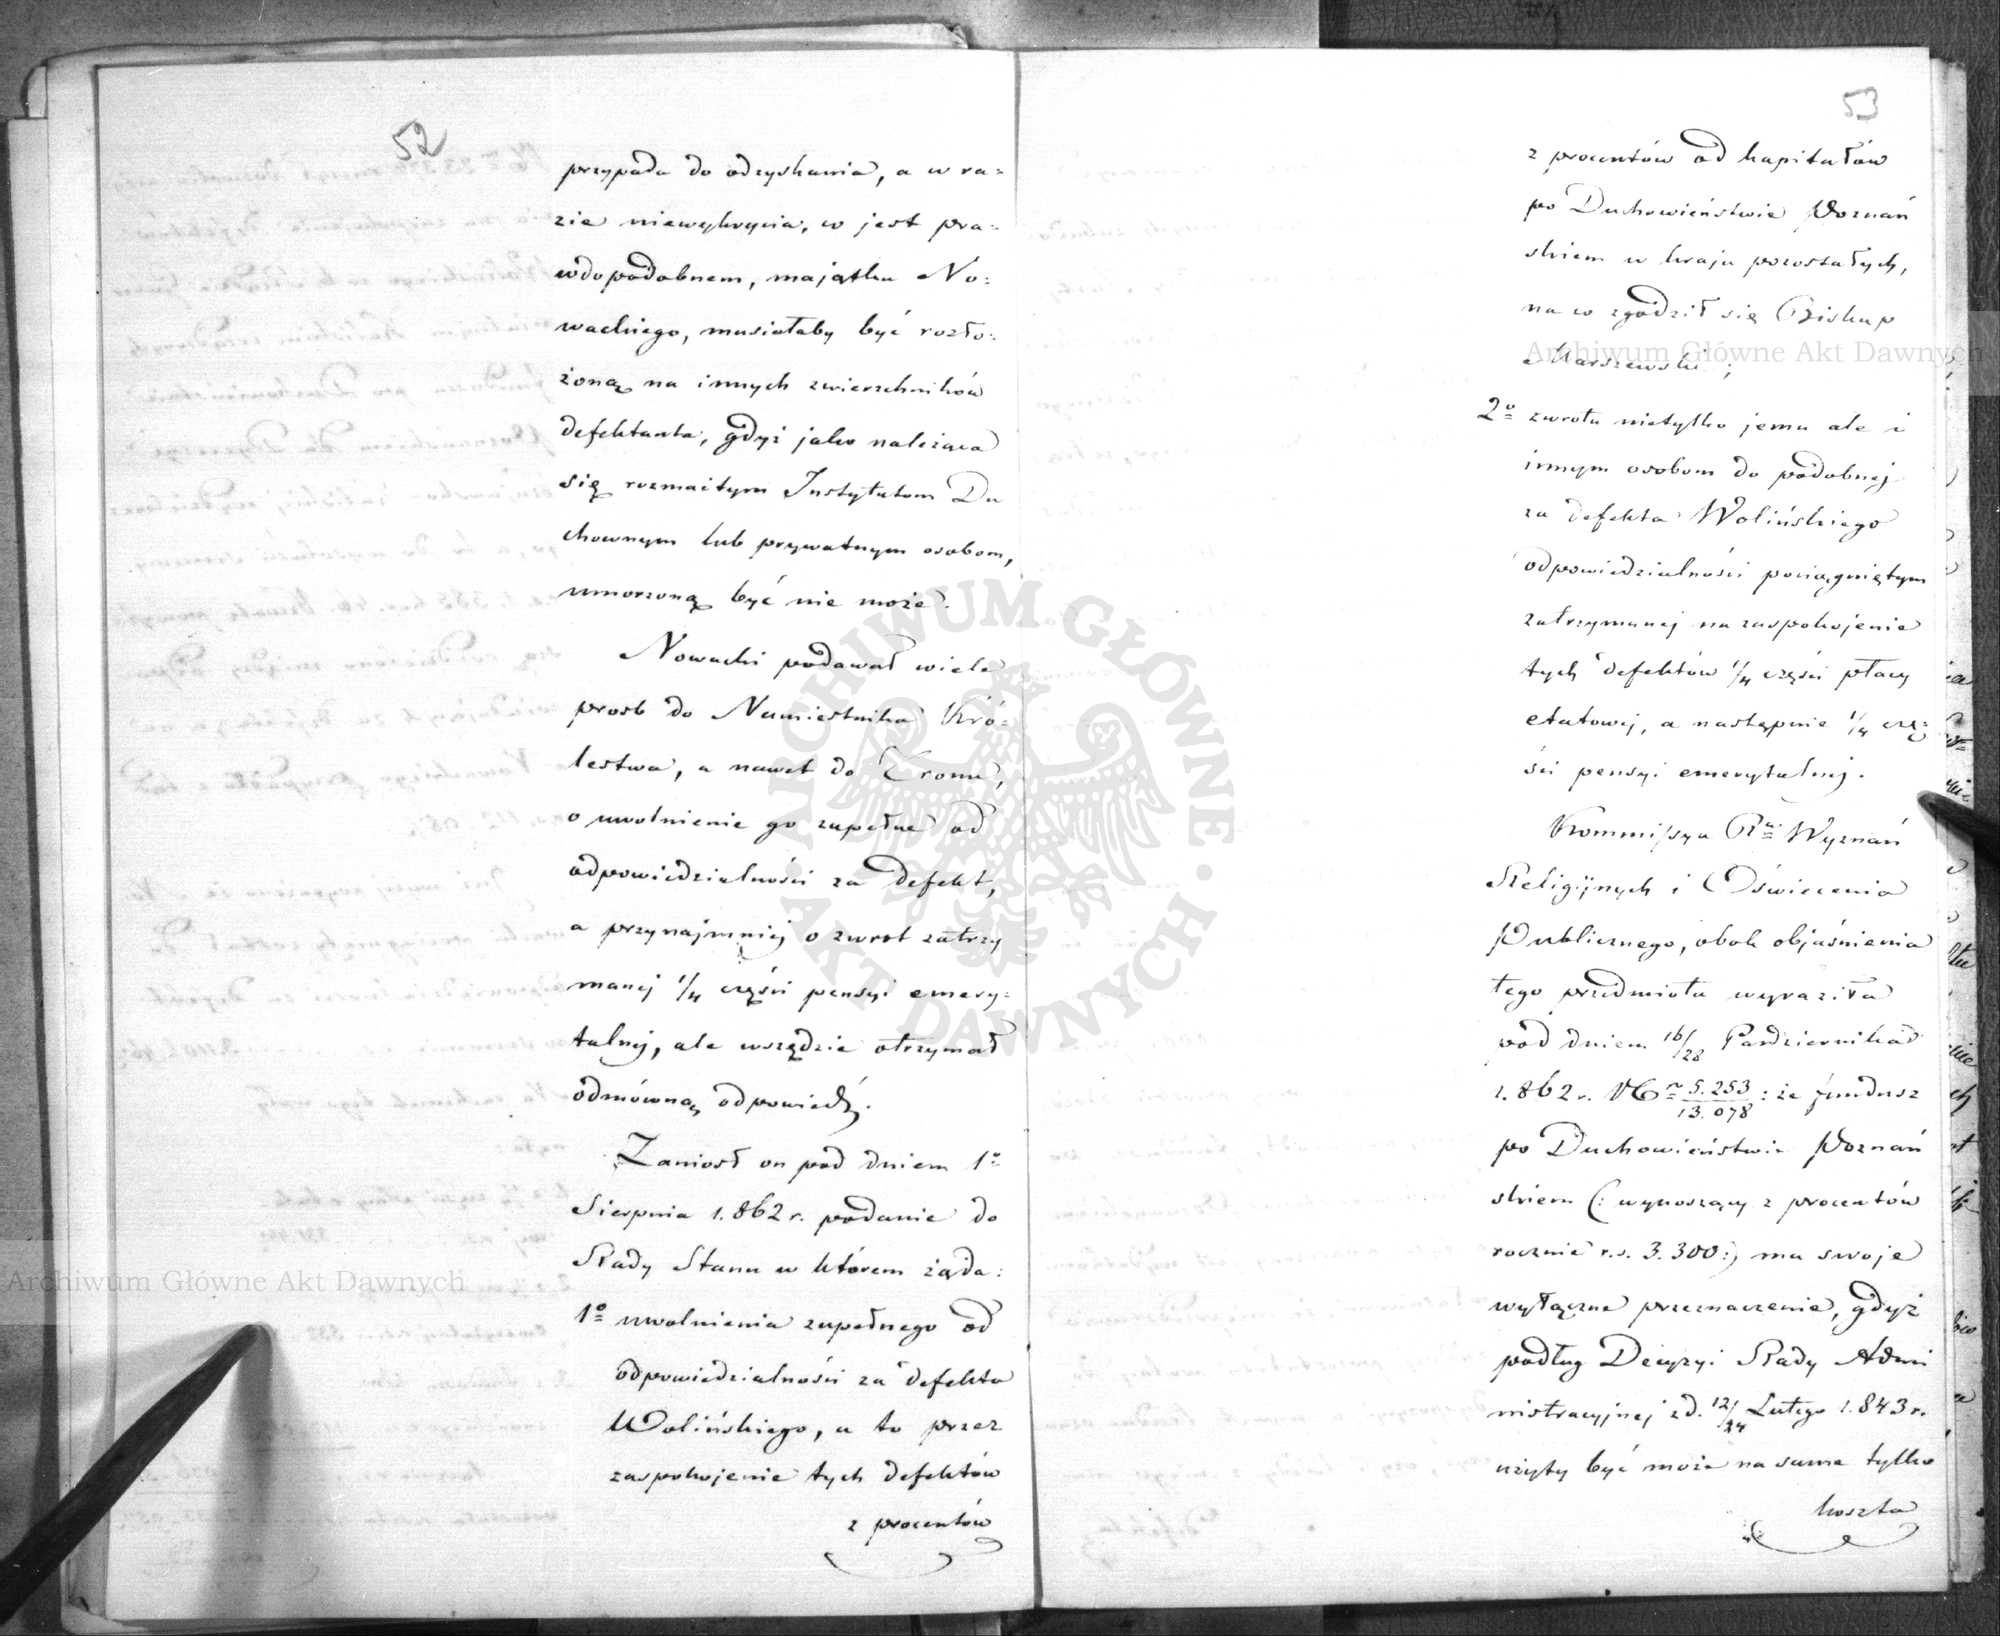 52
przypada do odzyskania, a w ra=
zie niewykrycia, co jest pra=
wdopodobnem, majątku No=
wackiego, musiałaby być rozło=
żoną na innych zwierzchników
defektanta, gdyż jako należąca
się rozmaitym Instytutom Du
chownym lub prywatnym osobom,
umorzoną być nie może.
Nowacki podawał wiele
prosb do Namiestnika Kró=
lestwa, a nawet do Tronu,
o uwolnienie go zupełne od
odpowiedzialności za defekt,
a przynajmniej o zwrot zatrzy
manej 1/4 części pensyi emery=
talnej, ale wszędzie otrzymał
odmówną odpowiedź.
Zaniosł on pod dniem 1º
Sierpnia 1.862 r. podanie do
Rady Stanu w którem żąda:
1º uwolnienia zupełnego od
odpowiedzialności za defekta
Wolińskiego, a to przez
zaspokojenie tych defektów
z procentów
53
z procentów od kapitałów
po Duchowieństwie Poznań
skiem w kraju pozostałych,
na co zgodził się Biskup
Marszewski;
2º zwrotu nietylko jemu ale i
innym osobom do podobnej
za defekta Wolińskiego
odpowiedzialności pociągniętym
zatrzymanej na zaspokojenie
tych defektów 1/4 części płacy
etatowej, a następnie 1/4 czę=
ści pensyi emerytalnej.
Kommissya Rwa Wyznań
Religijnych i Oświecenia
Publicznego, obok objaśnienia
tego przedmiotu wyraziła
pod dniem 16/28 Października
1.862 r. Nr 5.253/13.078: że fundusz
po Duchowieństwie Poznań
skiem (: wynoszący z procentów
rocznie r.s. 3.300:) ma swoje
wyłączne przeznaczenie, gdyż
podług Decyzyi Rady Admi
nistracyjnej z d. 12/24 Lutego 1.843 r.
użyty być może na same tylko
koszta
Archiwum Główne Akt Dawnych
Archiwum Główne Akt Dawnych
ARCHIWUM GŁÓWNE · AKT DAWNYCH ·